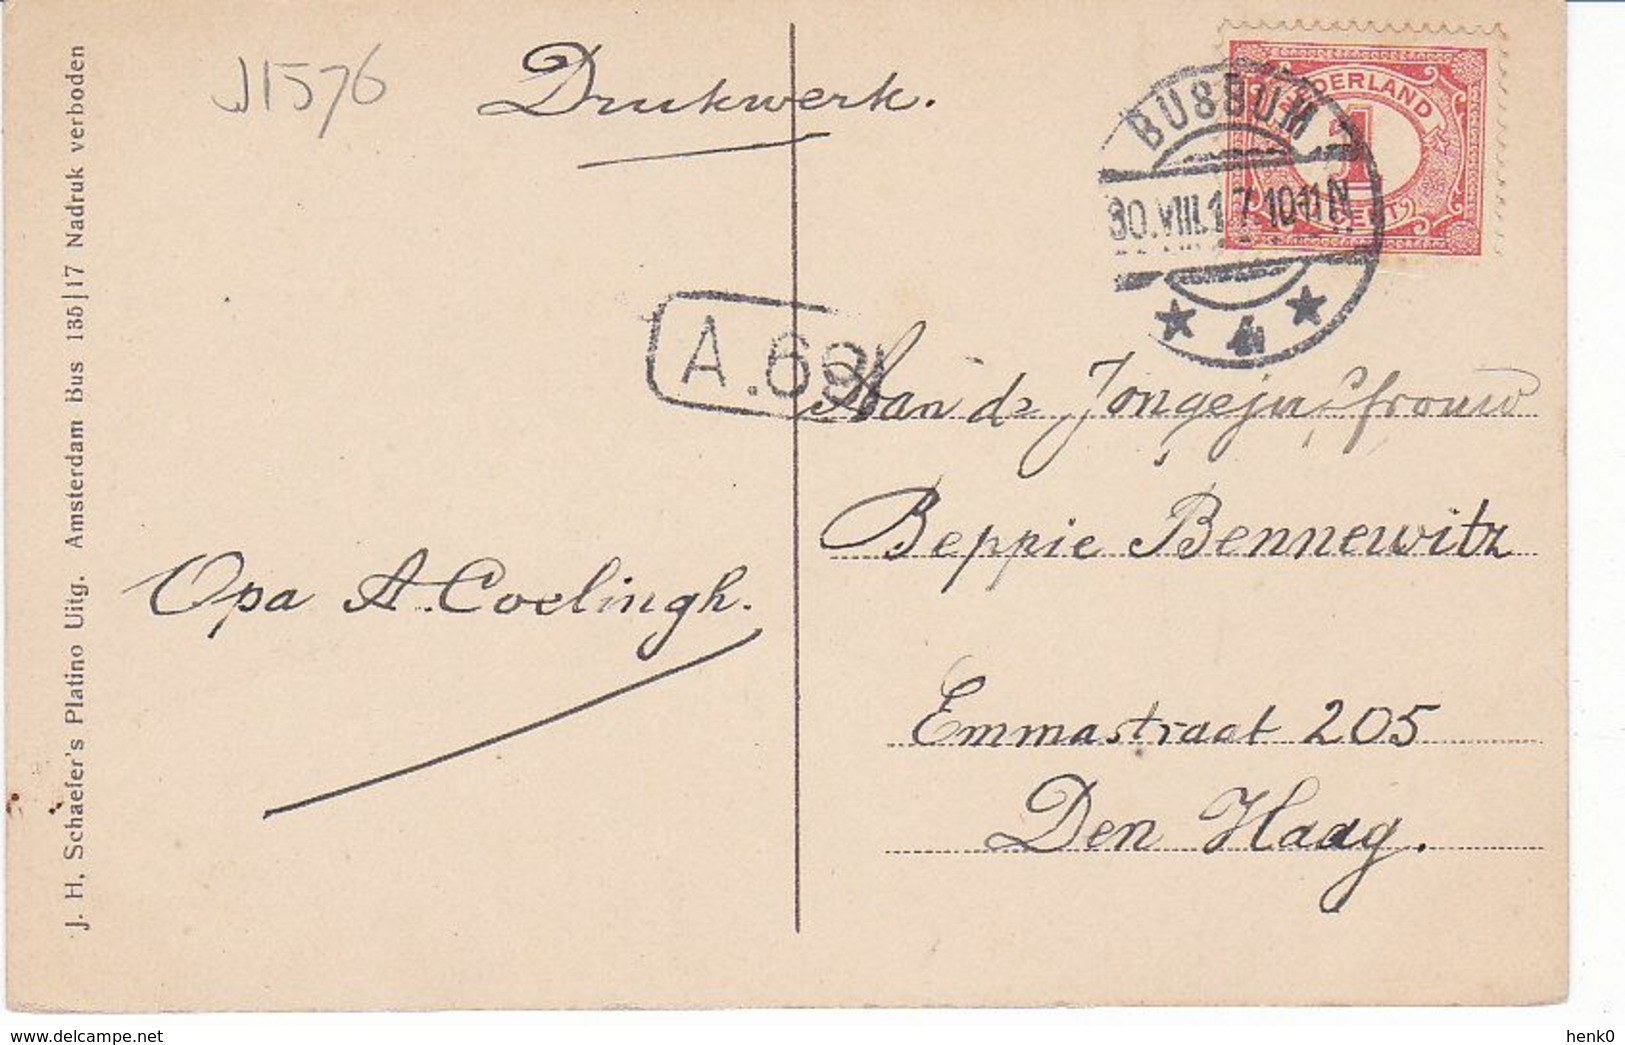 J1576
Drukwerk.
BUSSUM
30.VIII.17.10-11N
4
NEDERLAND
1
CENT
A.69
Aan de Jongejuffrouw
Beppie Bennewitz
Opa A. Coelingh.
Emmastraat 205
Den Haag.
J. H. Schaefer's Platino Uitg. Amsterdam Bus 135|17 Nadruk verboden
delcampe.net
henk0